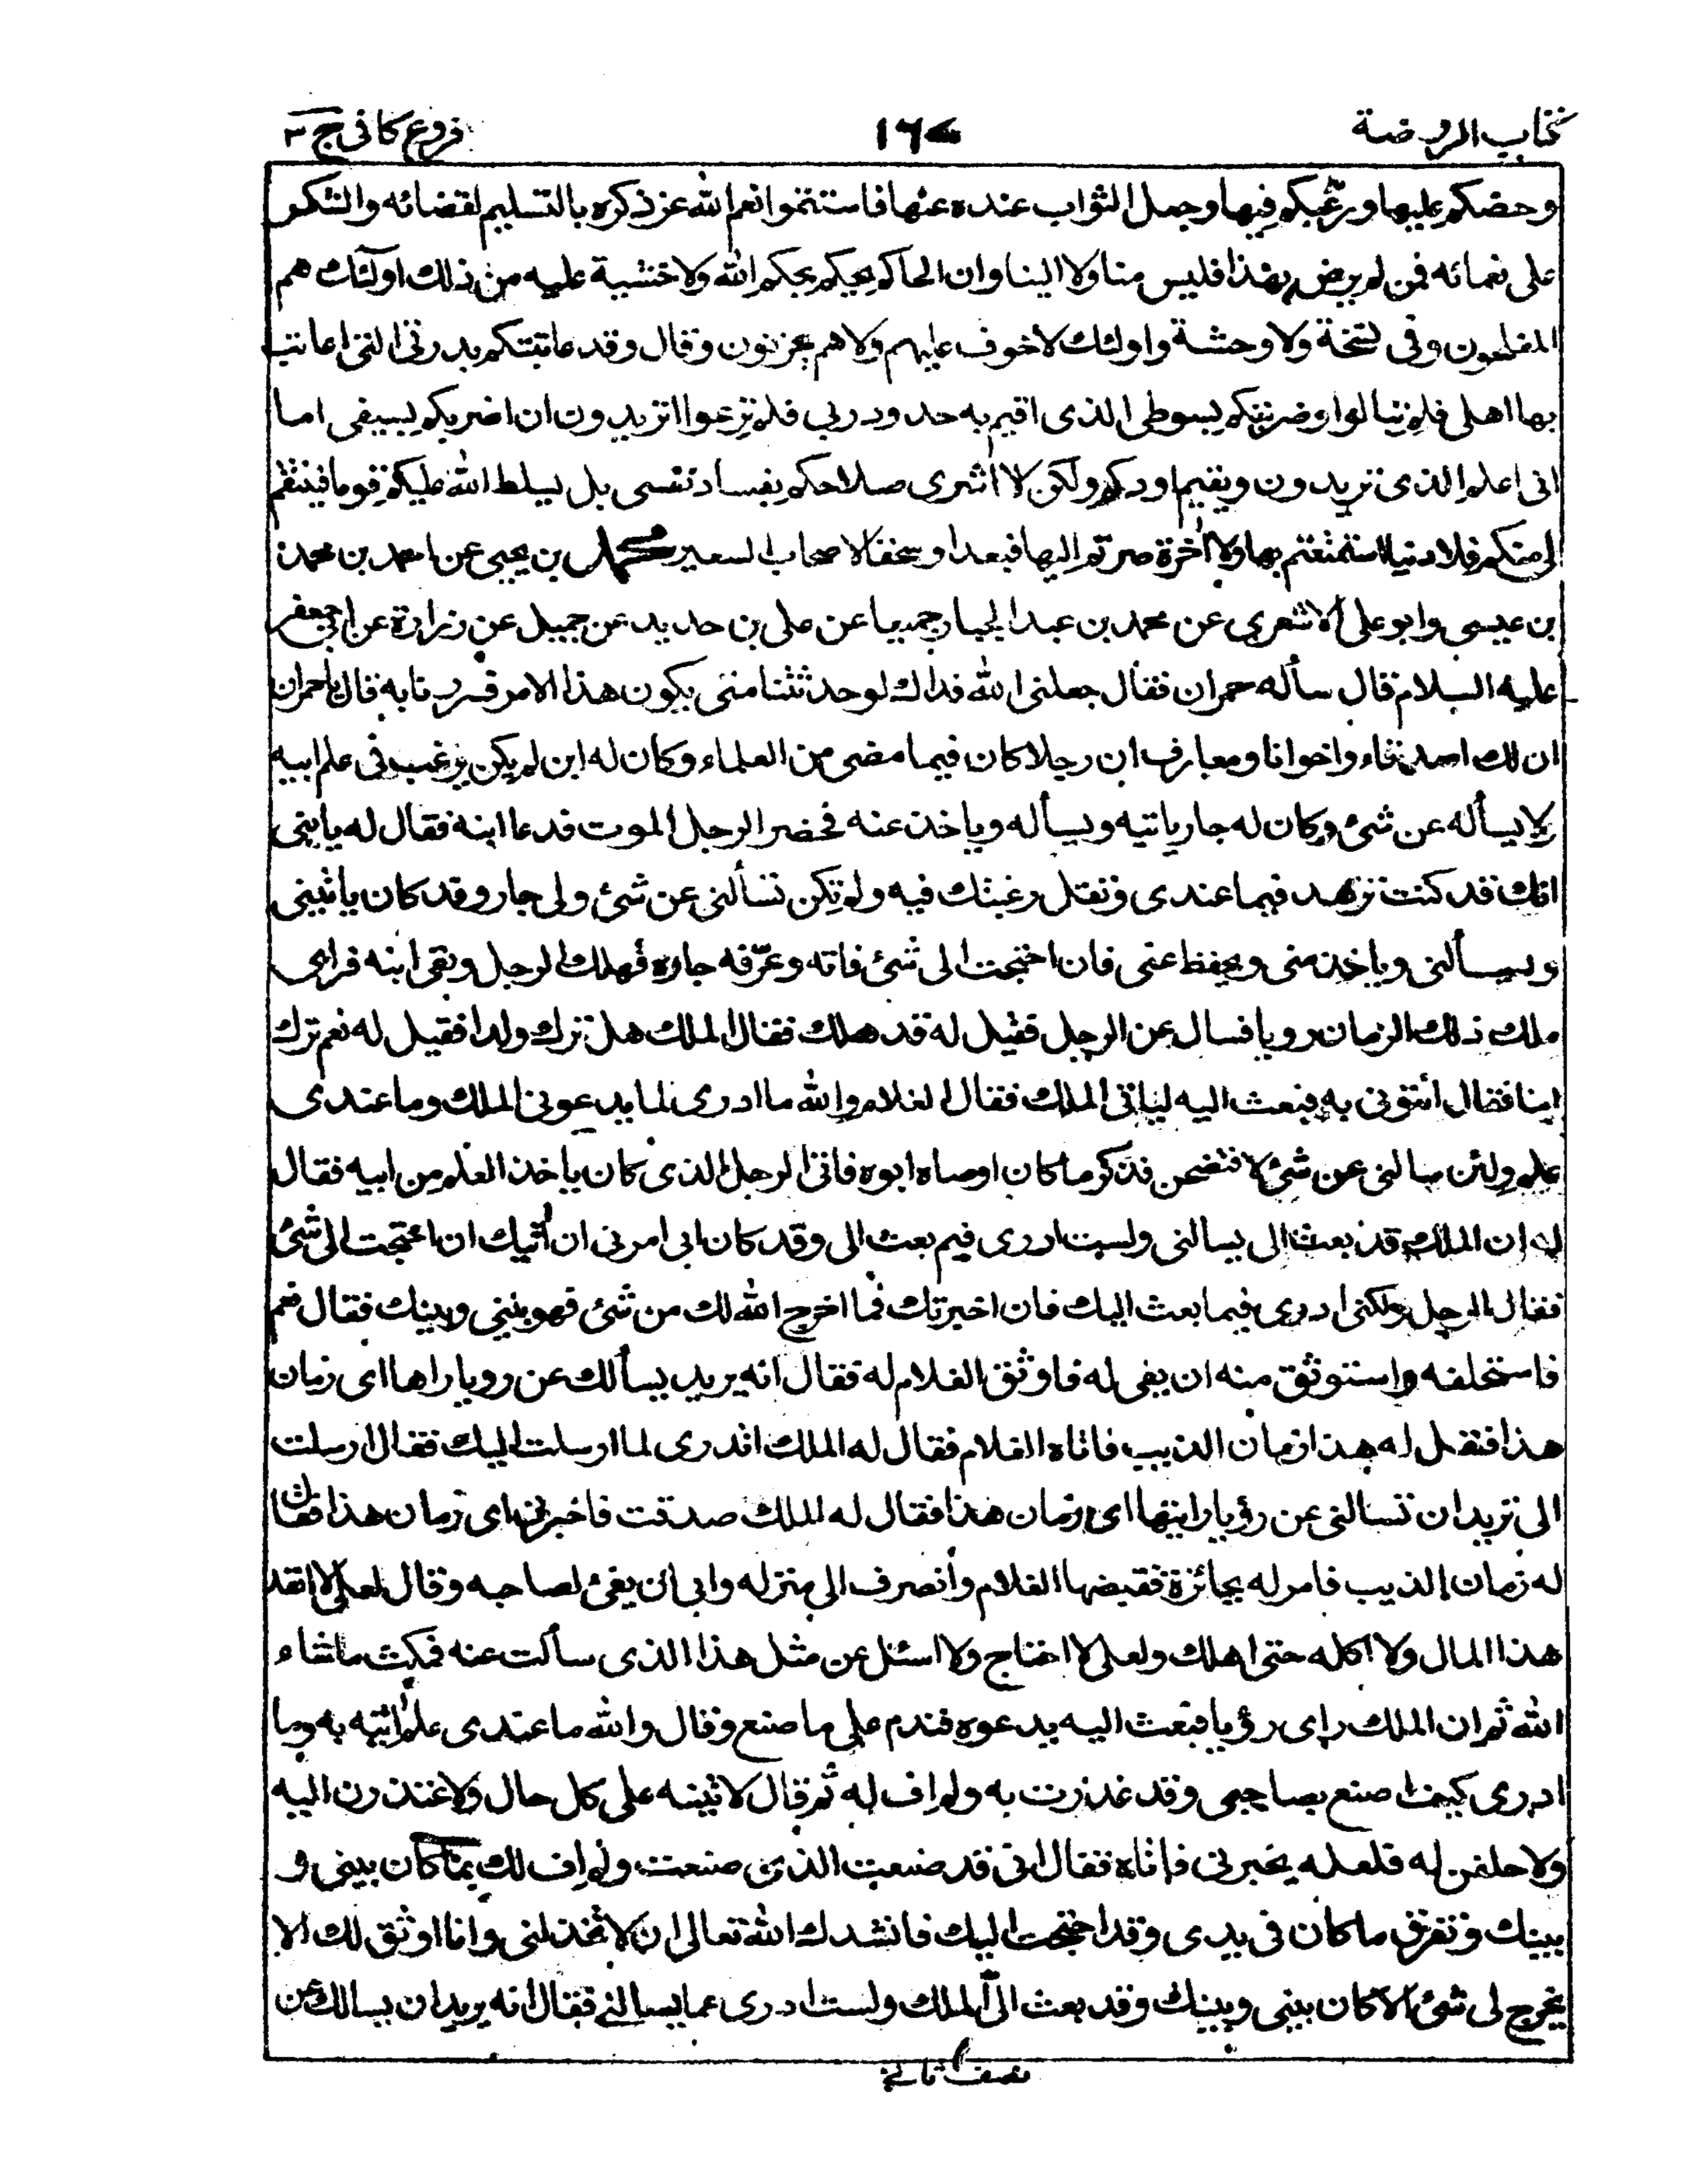 كتاب الروضة
١٦٤
فروع كافى ج ٣
وحضكم عليها ورغبكم فيها وجعل الثواب عنده عنها فاستتموا نعم الله عز ذكره بالتسليم لقضائه والشكر
على نعمائه فمن لم يرض بهذا فليس منا ولا الينا وان الحاكم يحكم بحكم الله ولا خشية عليه من ذلك اولئك هم
المفلحون وفى نسخة ولا وحشة واولئك لا خوف عليهم ولا هم يحزنون وقال وقد عاتبتكم بدرتى التى اعاتب
بها اهلى فلم تبالوا وضربتكم بسوطى الذى اقيم به حدود ربى فلم ترعووا اتريدون ان اضربكم بسيفى اما
انى اعلم الذى تريدون ويقيم اودكم ولكن لا اشرى صلاحكم بفساد نفسى بل يسلط الله عليكم قوما فينتقم
لى منكم فلا دنيا استمتعتم بها ولا آخرة صرتم اليها فبعدا وسحقا لاصحاب السعير محمد بن يحيى عن احمد بن محمد
بن عيسى وابو على الاشعرى عن محمد بن عبد الجبار جميعا عن على بن حديد عن جميل عن زرارة عن ابى جعفر
عليه السلام قال سأله حمران فقال جعلنى الله فداك لو حدثتنا متى يكون هذا الامر فسررنا به قال يا حمران
ان لك اصدقاء واخوانا ومعارف ان رجلا كان فيما مضى من العلماء وكان له ابن لم يكن يرغب فى علم ابيه
لا يسأله عن شئ وكان له جار ياتيه ويسأله وياخذ عنه فحضر الرجل الموت فدعا ابنه فقال له يا بنى
انك قد كنت تزهد فيما عندى وتقل رغبتك فيه ولم تكن تسألنى عن شئ ولى جار وقد كان ياتينى
ويسألنى وياخذ منى ويحفظ عنى فان احتجت الى شئ فاته وعرّفه جاره فهلك الرجل وبقى ابنه فراى
ملك ذلك الزمان رويا فسال عن الرجل فقيل له قد هلك فقال الملك هل ترك ولدا فقيل له نعم ترك
ابنا فقال ائتونى به فبعث اليه لياتى الملك فقال الغلام والله ما ادرى لما يدعونى الملك وما عندى
علم ولئن سالنى عن شئ لافتضحن فذكر ما كان اوصاه ابوه فاتى الرجل الذى كان ياخذ العلم من ابيه فقال
له ان الملك قد بعث الى يسالنى ولست ادرى فيم بعث الى وقد كان ابى امرنى ان آتيك ان احتجت الى شئ
فقال الرجل ولكنى ادرى فيما بعث اليك فان اخبرتك فما اخرج الله لك من شئ فهو بينى وبينك فقال نعم
فاستحلفه واستوثق منه ان يفى له فاوثق الغلام له فقال انه يريد يسألك عن رويا راها اى زمان
هذا فتقل له هذا زمان الذيب فاتاه الغلام فقال له الملك اتدرى لما ارسلت اليك فقال ارسلت
الى تريد ان تسالنى عن رؤيا رايتها اى زمان هذا فقال له الملك صدقت فاخبرنى اى زمان هذا فقال
له زمان الذيب فامر له بجائزة فقبضها الغلام وانصرف الى منزله وابى ان يفئ لصاحبه وقال لعلى لا انفد
هذا المال ولا آكله حتى اهلك ولعلى لا احتاج ولا اسئل عن مثل هذا الذى سألت عنه فمكث ما شاء
الله ثم ان الملك راى رؤيا فبعث اليه يدعوه فندم على ما صنع وقال والله ما عندى علم آتيه به وما
ادرى كيف اصنع بصاحبى وقد غدرت به ولم اف له ثم قال لاتينه على كل حال ولاعتذرن اليه
ولاحلفن له فلعله يخبرنى فاتاه فقال انى قد صنعت الذى صنعت ولم اف لك بما كان بينى و
بينك وتفرق ما كان فى يدى وقد احتجت اليك فانشدك الله تعالى ان لا تخذلنى وانا اوثق لك الا
يخرج لى شئ الا كان بينى وبينك وقد بعث الىّ الملك ولست ادرى عما يسالنى فقال انه يريد ان يسالك عن
نصف ثانى